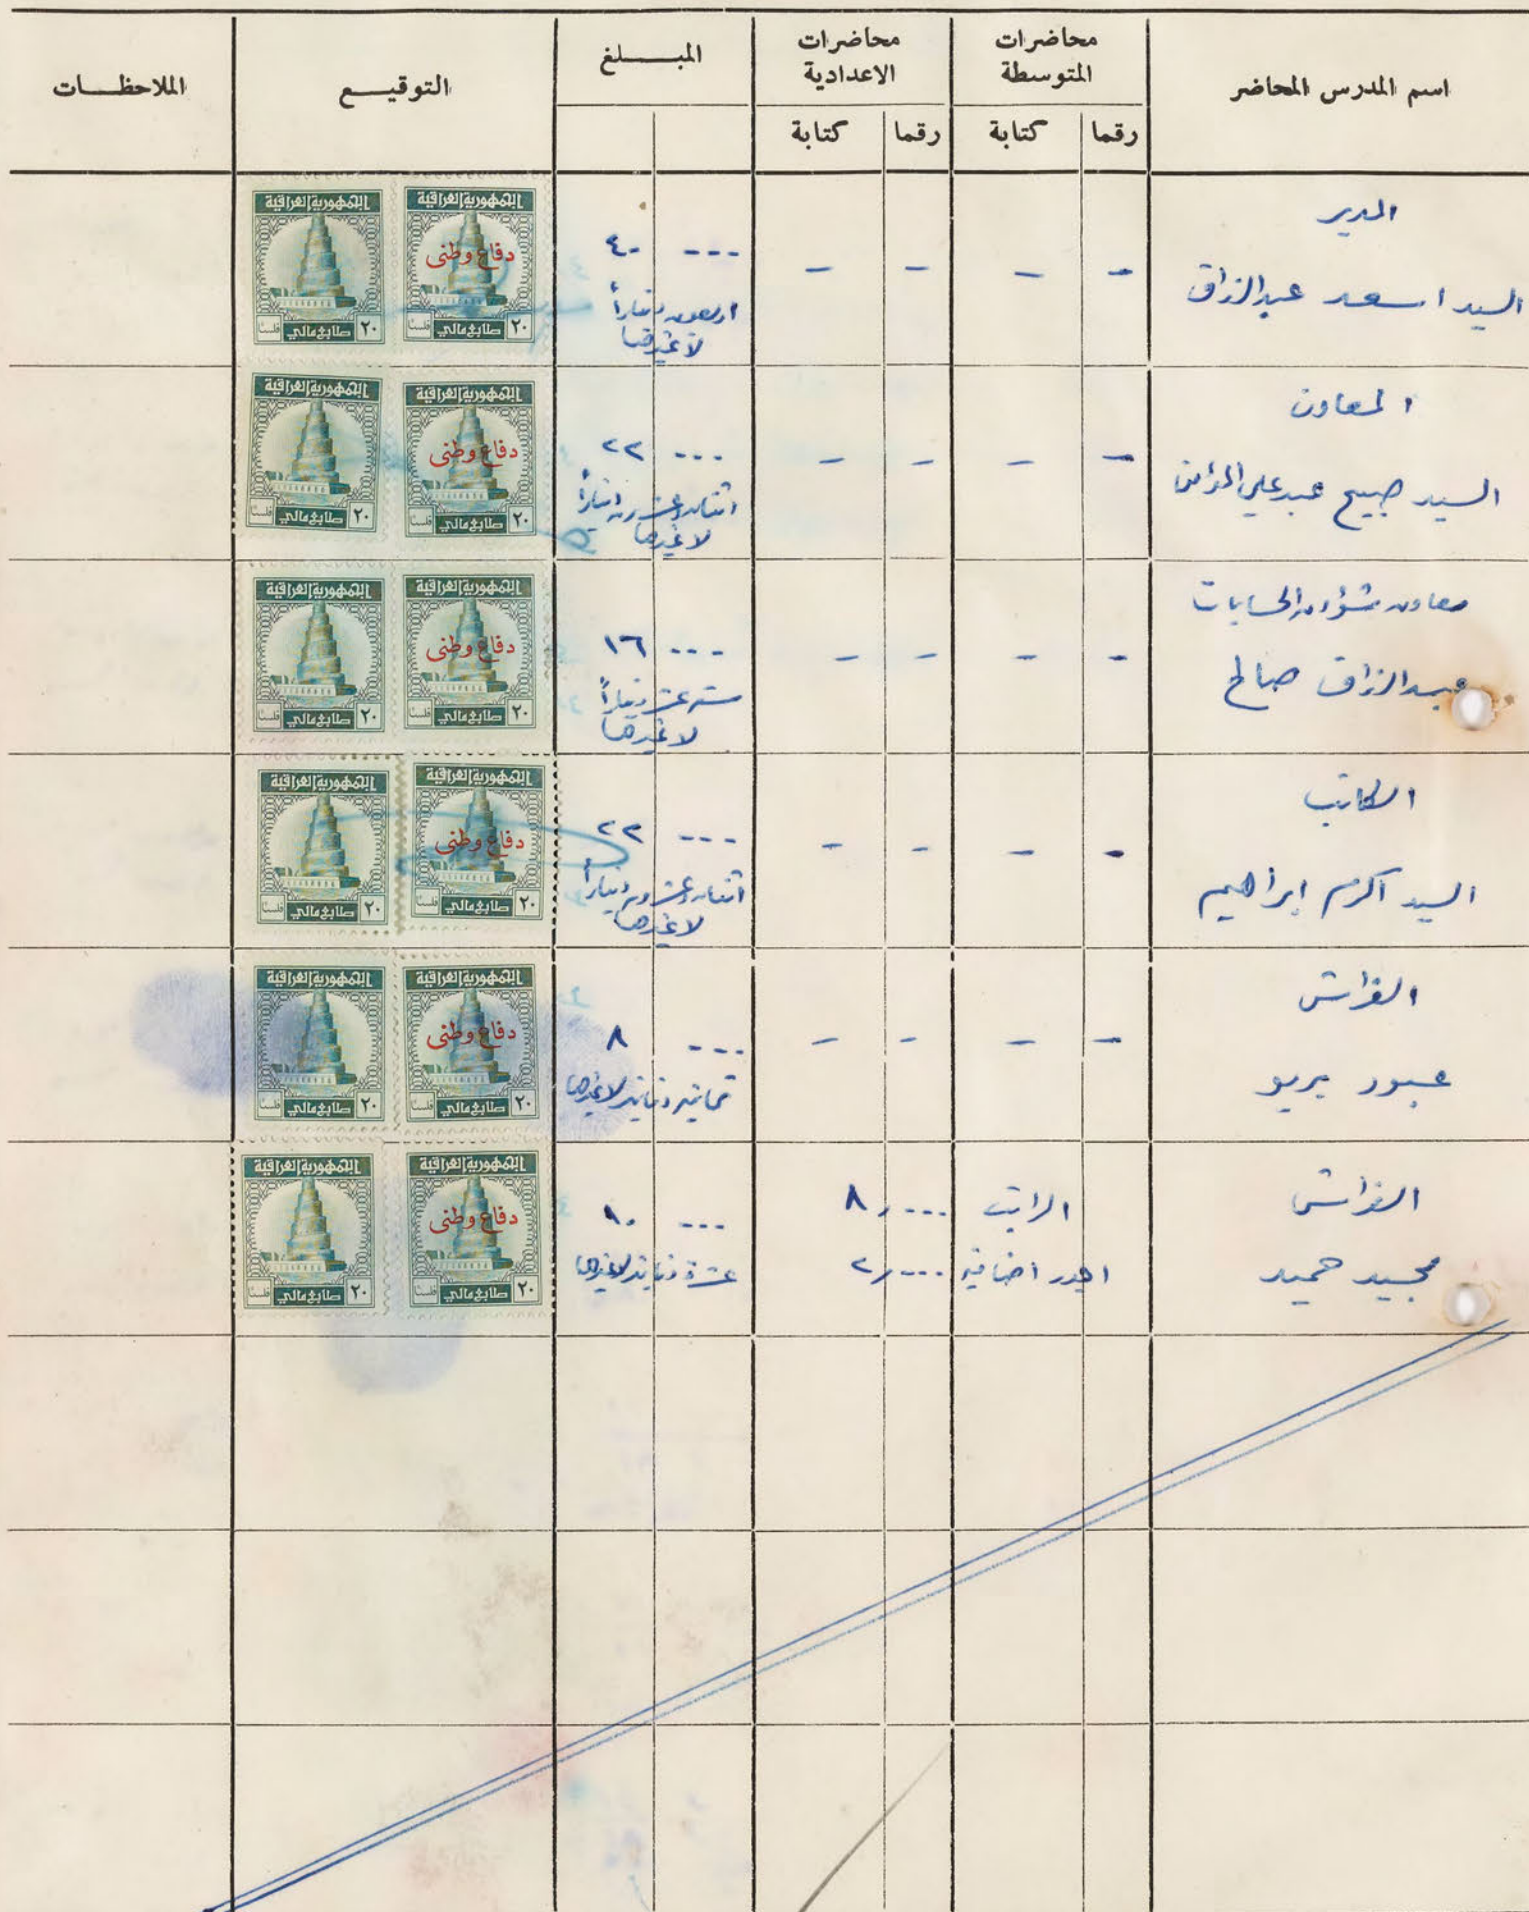 اسم المدرس المحاضر
محاضرات المتوسطة
محاضرات الاعدادية
المبـــلغ
التوقيـــع
الملاحظـــات
رقما
كتابة
رقما
كتابة
المدير
السيد اسعد عبدالرزاق
- - - -
٤٠ ---
اربعون ديناراً
لا غيرها
الجمهورية العراقية
دفاع وطني
٢٠ طابع مالي فلسًا
الجمهورية العراقية
٢٠ طابع مالي فلسًا
المعاون
السيد صبيح عبد علي
- - - -
٢٢ ---
اثنان وعشرون ديناراً
لا غيرها
الجمهورية العراقية
دفاع وطني
٢٠ طابع مالي فلسًا
الجمهورية العراقية
٢٠ طابع مالي فلسًا
معاون شؤون الحسابات
عبدالرزاق صالح
- - - -
١٦ ---
ستة عشر ديناراً
لا غيرها
الجمهورية العراقية
دفاع وطني
٢٠ طابع مالي فلسًا
الجمهورية العراقية
٢٠ طابع مالي فلسًا
الكاتب
السيد اكرم إبراهيم
- - - -
٢٢ ---
اثنان وعشرون ديناراً
لا غيرها
الجمهورية العراقية
دفاع وطني
٢٠ طابع مالي فلسًا
الجمهورية العراقية
٢٠ طابع مالي فلسًا
الفراش
عبور بريو
- - - -
٨ ---
ثمانية دنانير لا غيرها
الجمهورية العراقية
دفاع وطني
٢٠ طابع مالي فلسًا
الجمهورية العراقية
٢٠ طابع مالي فلسًا
الفراش
مجيد حميد
الراتب ٨,---
اجور اضافية ٢,---
١٠ ---
عشرة دنانير لا غيرها
الجمهورية العراقية
دفاع وطني
٢٠ طابع مالي فلسًا
الجمهورية العراقية
٢٠ طابع مالي فلسًا